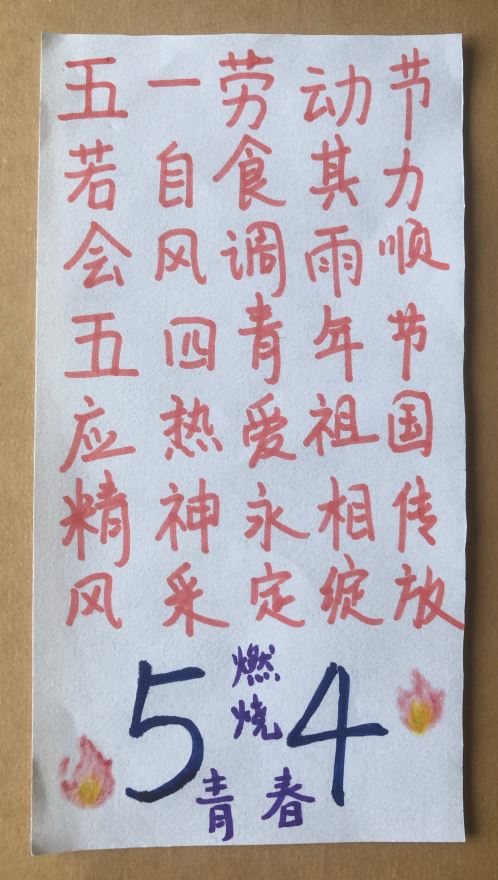 五一劳动节
若自食其力
会风调雨顺
五四青年节
应热爱祖国
精神永相传
风采定绽放
5 燃烧 4
青春